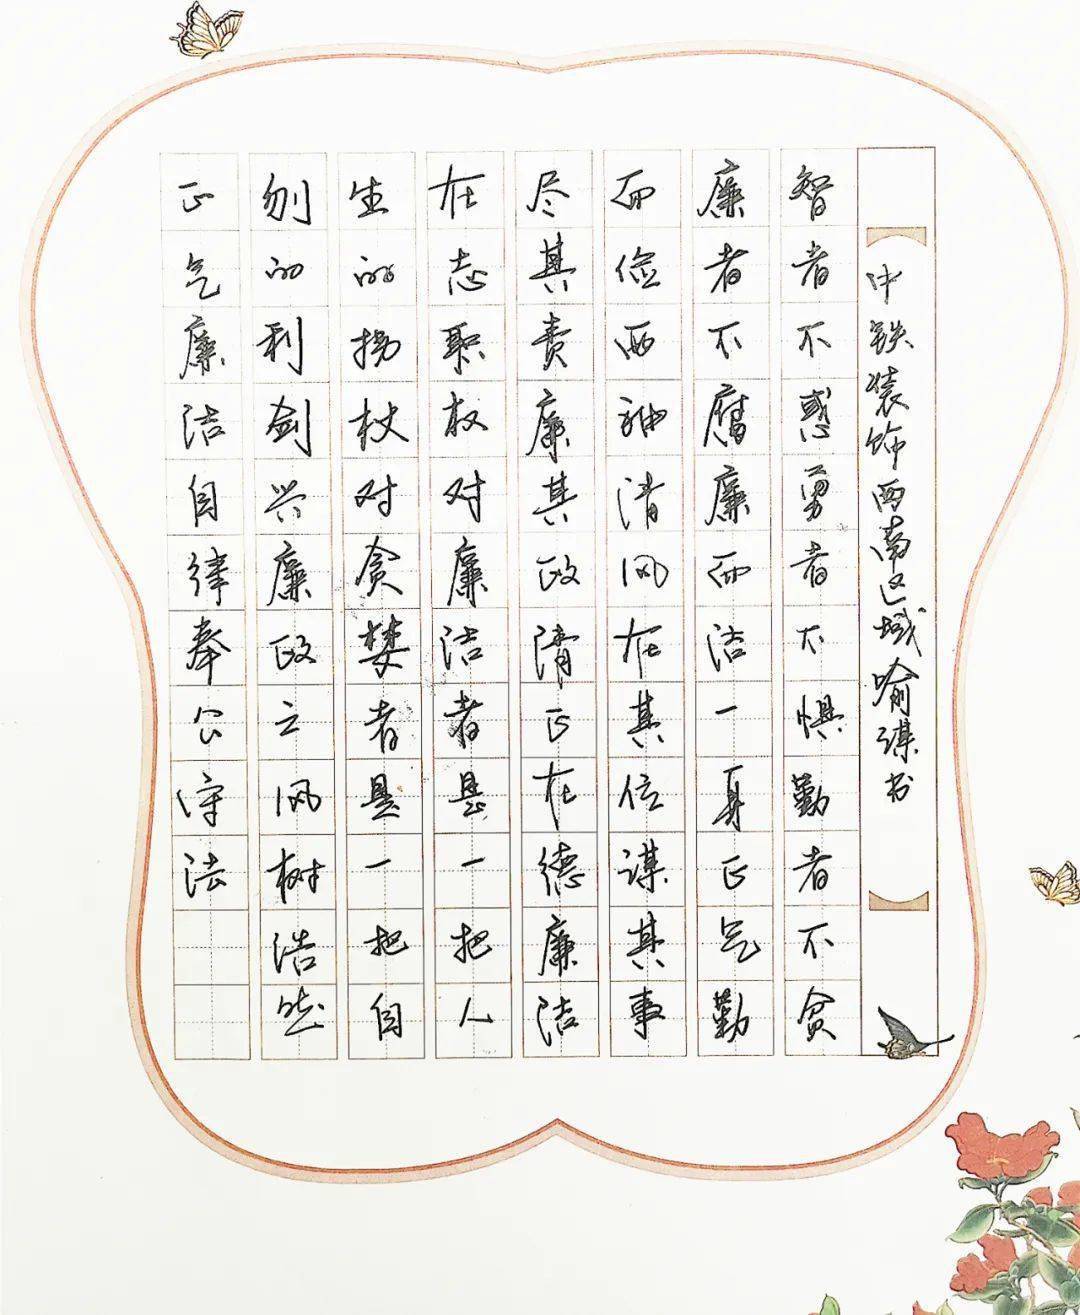 中铁装饰西南区域喻谋书
智者不惑勇者不惧勤者不贪
廉者不腐廉而洁一身正气勤
而俭两袖清风在其位谋其事
尽其责廉其政清正在德廉洁
在志职权对廉洁者是一把人
生的拐杖对贪婪者是一把自
刎的利剑兴廉政立风树浩然
正气廉洁自律奉公守法